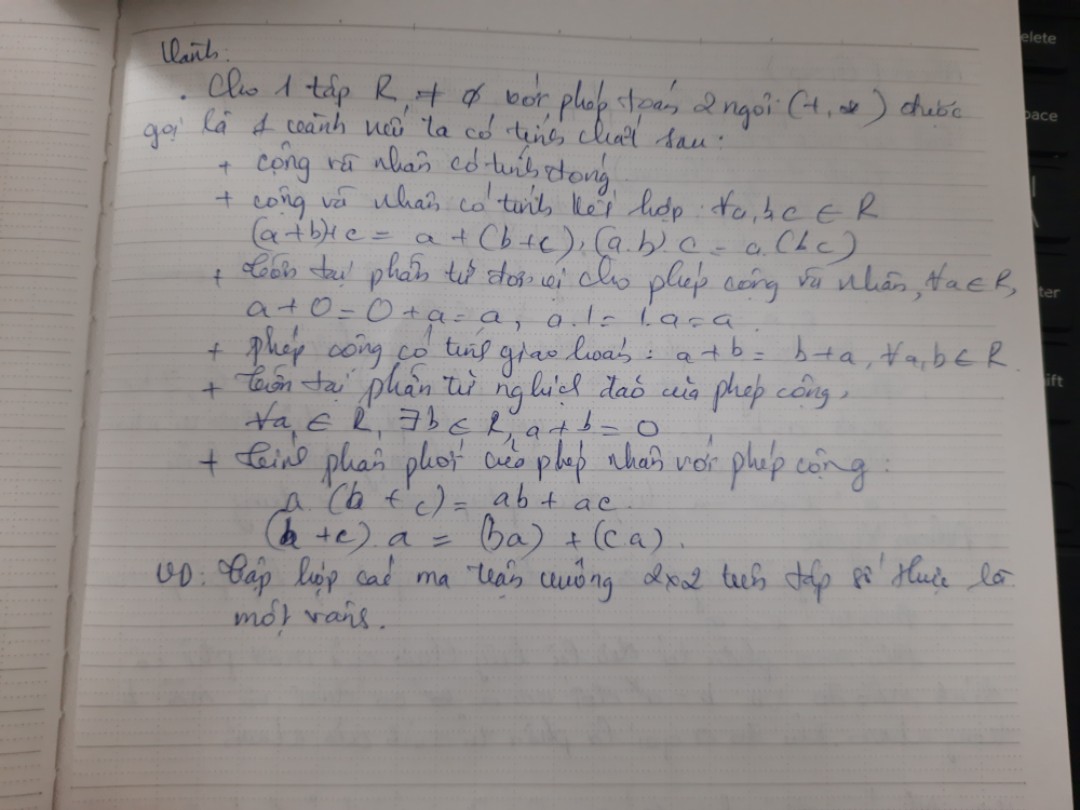 Vành:
. Cho 1 tập R, ≠ ∅ với phép toán 2 ngôi (+, *) được
gọi là 1 vành nếu ta có tính chất sau:
+ cộng và nhân có tính đóng.
+ cộng và nhân có tính kết hợp: ∀a,b,c ∈ R
(a+b)+c = a+(b+c), (a.b).c = a.(bc)
+ tồn tại phần tử đơn vị cho phép cộng và nhân, ∀a∈R,
a+0=0+a=a, a.1=1.a=a.
+ phép cộng có tính giao hoán: a+b = b+a, ∀a,b∈R
+ tồn tại phần tử nghịch đảo của phép cộng,
∀a ∈ R, ∃b ∈ R, a+b=0
+ tính phân phối của phép nhân với phép cộng:
a.(b+c) = ab + ac.
(b+c).a = (ba) + (ca).
VD: Tập hợp các ma trận vuông 2x2 trên tập số thực là
một vành.